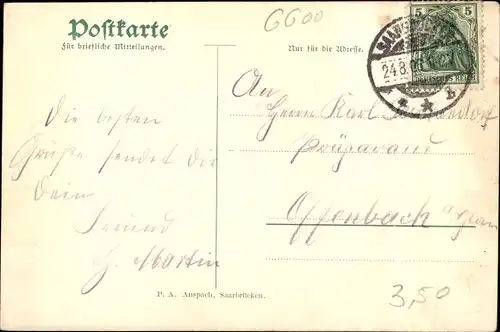 6600
Postkarte
Für briefliche Mitteilungen.
Nur für die Adresse.
5 5
24.8.
DEUTSCHES REICH
* b
An
Herrn Karl
Präparand
Offenbach a/Glan
Die besten
Grüße sendet Dir
Dein
Freund
H. Martin
P. A. Anspach, Saarbrücken.
3,50